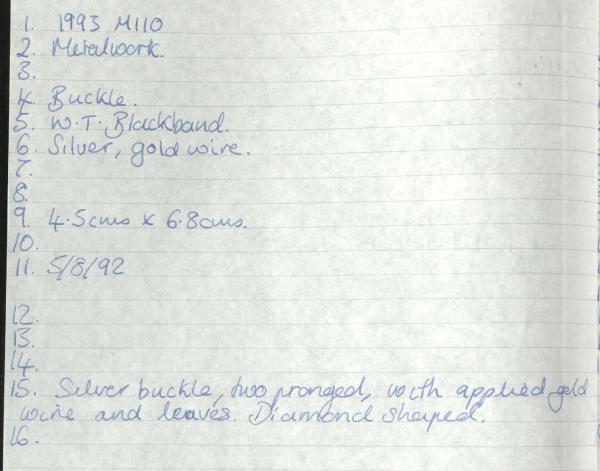 1. 1993 M110
2. Metalwork.
3.
4. Buckle.
5. W.T. Blackband.
6. Silver, gold wire.
7.
8.
9. 4.5cms x 6.8cms.
10.
11. 5/8/92
12.
13.
14.
15. Silver buckle, two pronged, with applied gold
wire and leaves. Diamond shaped.
16.